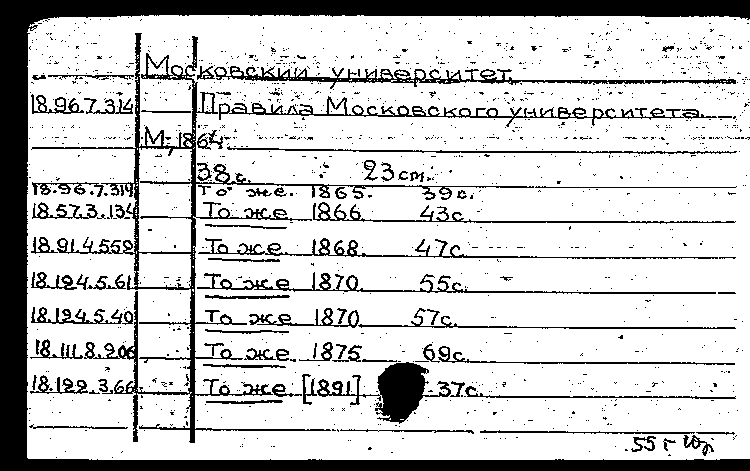 Московский университет.
18.96.7.314 Правила Московского университета.
М., 1864.
38с. 23 см.
18.96.7.314 То же. 1865. 39с.
18.57.3.134 То же 1866. 43с.
18.91.4.559 То же 1868. 47с.
18.124.5.61 То же 1870. 55с.
18.124.5.40 То же 1870. 57с.
18.111.8.206 То же 1875. 69с.
18.122.3.66 То же [1891] 37с.
55 г